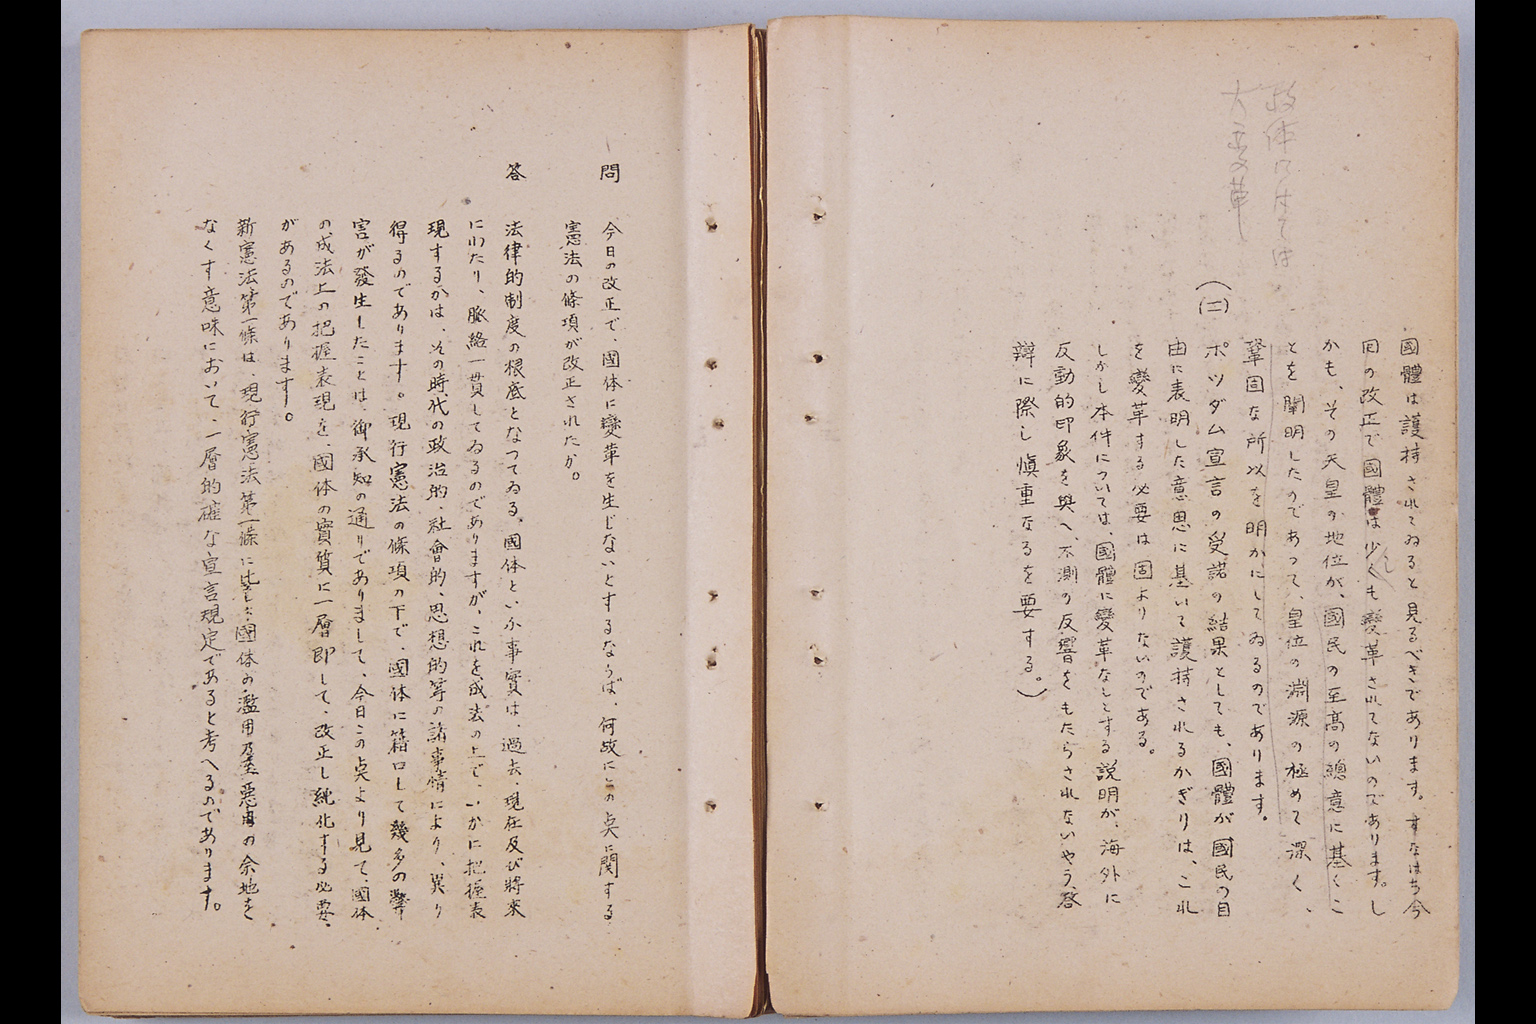 政体に付ては
大変革
國體は護持されてゐると見るべきであります。すなはち今
回の改正で國體は少くも變革されてないのであります。し
かも、その天皇の地位が、國民の至高の總意に基くこ
とを闡明したのであつて、皇位の淵源の極めて深く、
鞏固な所以を明かにしてゐるのであります。
(二)
(ポツダム宣言の受諾の結果としても、國體が國民の自
由に表明した意思に基いて護持されるかぎりは、これ
を變革する必要は固よりないのである。
しかし本件については、國體に變革なしとする説明が、海外に
反動的印象を與へ、不測の反響をもたらされないやう、答
辯に際し愼重なるを要する。)
問
今日の改正で、國体に變革を生じないとするならば、何故にこの点に関する
憲法の條項が改正されたか。
答
法律的制度の根底となつてゐる、國体といふ事實は、過去現在及び將來
にわたり、脈絡一貫してゐるのでありますが、これを成法の上で、いかに把握表
現するかは、その時代の政治的、社會的、思想的等の諸事情により、異り
得るのであります。現行憲法の條項の下で、國体に籍口して幾多の弊
害が發生したことは、御承知の通りでありまして、今日この点より見て、國体
の成法上の把握表現を、國体の實質に一層即して、改正し純化する必要
があるのであります。
新憲法第一條は、現行憲法第一條に比し、國体の濫用乃至悪用の余地を
なくす意味において、一層的確な宣言規定であると考へるのであります。